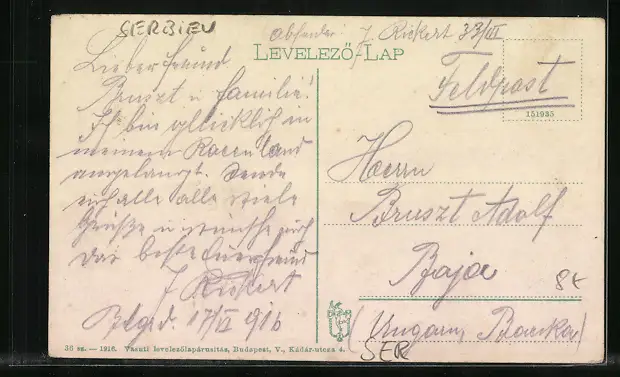 SERBIEN
Absender J. Rickert 33/III
LEVELEZŐ-LAP
Feldpost
151935
Lieber Freund
Bruszt u familie!
Ich bin glücklich in
meinem Racenland
angelangt. Sende
euch alle alle viele
Grüße u wünsche euch
das beste Freund
J. Rickert
Belgrd. 17/VI 916
Herrn
Bruszt Adolf
Baja
8t
(Ungarn, Backa)
SER
36 sz. — 1916. Vasuti levelezőlapárusitás, Budapest, V., Kádár-utcza 4.